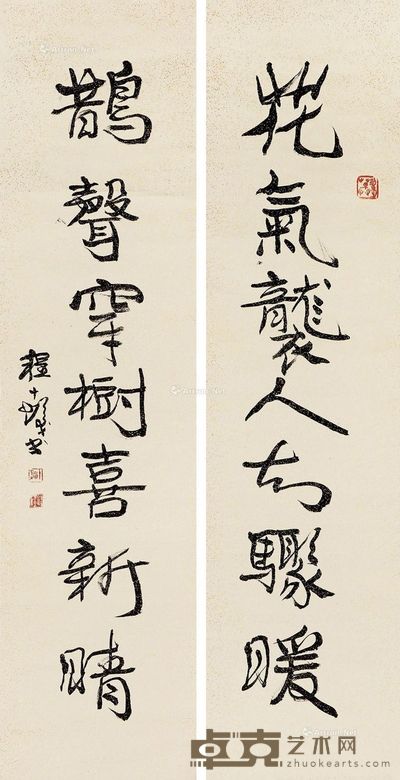 花氣襲人知驟暖
鵲聲穿樹喜新晴
程十髮書
卓克艺术网
zhuokearts.com